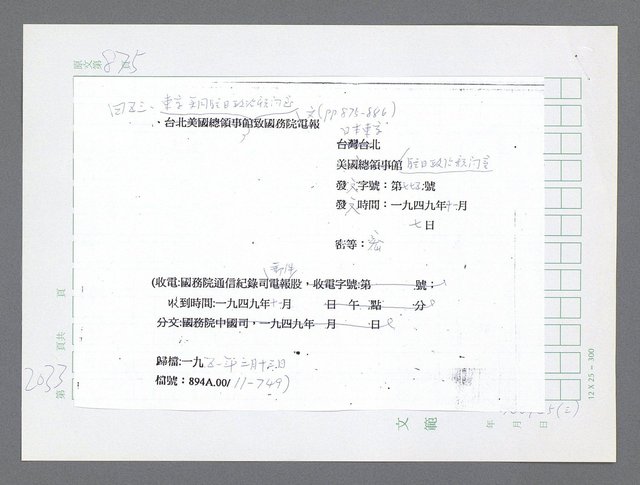 原文第875頁
(pp 875-886)
台北美國總領事館致國務院電報
日本東京
台灣台北
美國總領事館
發文字號：第 號
發文時間：一九四九年十一月
七日
密等：密
郵件
(收電:國務院通信紀錄司電報股，收電字號:第 號；
收到時間:一九四九年十一月 日 午 點 分
分文:國務院中國司，一九四九年 月 日
歸檔:一九五一年三月十三日
檔號：894A.00/11-749)
第 頁共 頁
2033
12 X 25 = 300
文範
年 月 日